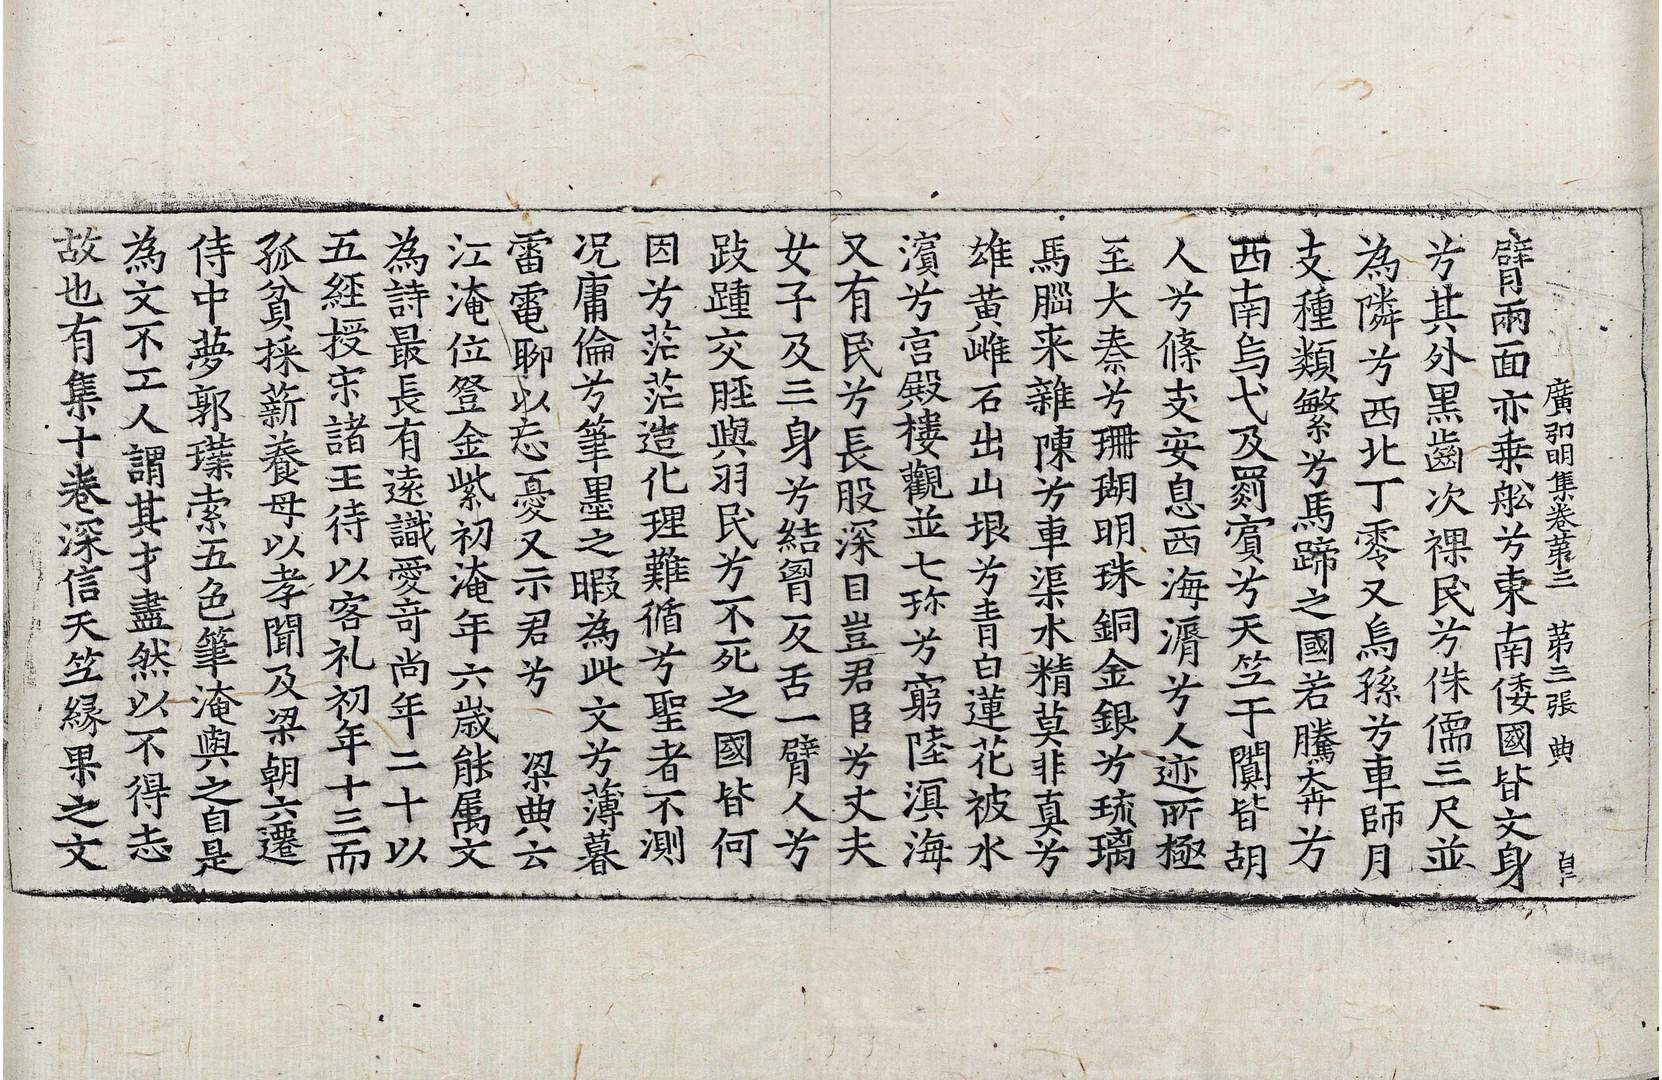 廣弘明集卷第三　第三張　典
臂兩面亦乗舩兮東南倭國皆文身
兮其外黒齒次裸民兮侏儒三尺並
為隣兮西北丁零又烏孫兮車師月
支種類繁兮馬蹄之國若騰奔兮
西南烏弋及罽賓兮天笁于闐皆胡
人兮條支安息西海漘兮人迹所極
至大秦兮珊瑚明珠銅金銀兮琉璃
馬腦来雜陳兮車渠水精莫非真兮
雄黄雌石出山垠兮青白蓮花被水
濵兮宫殿樓觀並七珎兮窮陸溟海
又有民兮長股深目豈君臣兮丈夫
女子及三身兮結胷反舌一臂人兮
跂踵交脛與羽民兮不死之國皆何
因兮茫茫造化理難循兮聖者不測
况庸倫兮筆墨之暇為此文兮薄暮
雷電聊以忘憂又示君兮　梁典云
江淹位登金紫初淹年六歲能属文
為詩最長有遠識愛竒尚年二十以
五經授宋諸王待以客礼初年十三而
孤貧採薪養母以孝聞及梁朝六遷
侍中夢郭璞索五色筆淹與之自是
為文不工人謂其才盡然以不得志
故也有集十巻深信天笁縁果之文